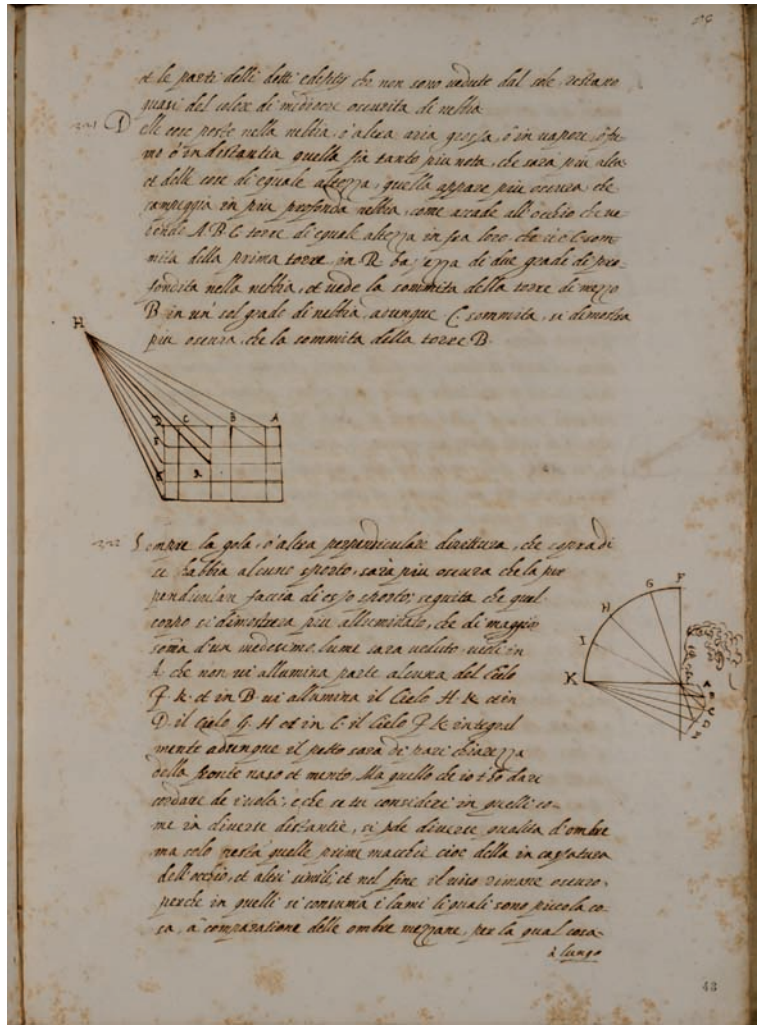 et le parti delli detti edifitij che non sono vedute dal sole, restano
quasi del colore di mediocre oscurita di nebbia
Delle cose poste nella nebbia, o altra aria grossa, ò in vapore ò fu-
mo ò in distantia quella fia tanto piu nota, che sara piu alta
et delle cose di eguale altezza, quella appare piu oscura, che
campeggia in piu profonda nebbia, come accade all'occhio che ve
dendo A.B.C. torre di eguale altezza in fra loro, che C. som-
mita della prima torre, in R. bassezza di due gradi di pro-
fondita nella nebbia, et vede la sommita della torre di mezzo
B in un' sol grado di nebbia, adunque C. sommita, si dimostra
piu oscura, che la sommita della torre B.
H
C B A
Sempre la gola, ò altra perpendiculare dirittura, che sopra di
se habbia alcuno sporto, sarà piu oscura che la per
pendiculare faccia di esso sporto; seguita che quel
corpo si dimostrera piu alluminato, che di maggior
soma d'un medesimo lume sara veduto, vedi in
A che non vi allumina parte alcuna del Cielo
F. K. et in B. vi allumina il Cielo H. K. et in
D. il cielo G. H et in C. il Cielo F K integral
mente adunque il petto sarà de pari chiarezza
della fronte naso et mento. Ma quello che io t'hò da ri
cordare de i volti, è che se tu consideri in quelli co-
me in diverse distantie, si pde diverse qualita d'ombre
ma solo resta quelle prime macchie cioe della incassatura
dell'occhio, et altri simili, et nel fine il viso rimane oscuro,
perche in quelli si consuma i lumi li quali sono piccola co-
sa, à comparatione delle ombre mezzane, per la qual cosa
à lungo
F
G
H
I
K
48